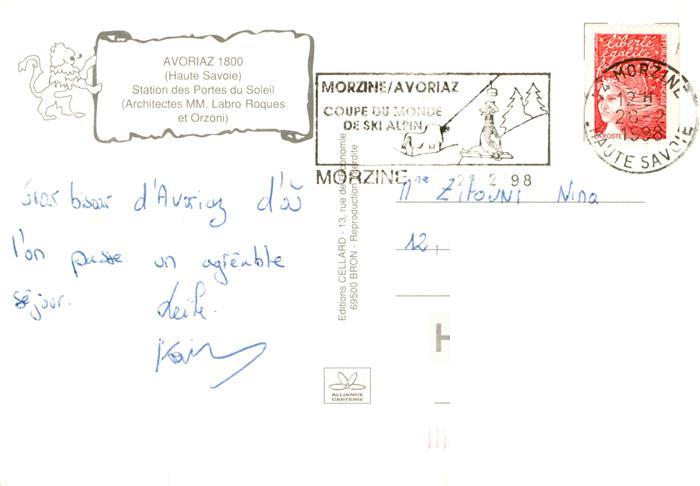 AVORIAZ 1800
(Haute Savoie)
Station des Portes du Soleil
(Architectes MM. Labro Roques
et Orzoni)
MORZINE/AVORIAZ
COUPE DU MONDE
DE SKI ALPIN
MORZINE 2 2 98
liberté
égalité
LA POSTE
74 MORZINE
19 H
28 -2
1998
HAUTE SAVOIE
d'Avoriaz d'où
l'on passe un agréable
séjour.
Leïla.
Editions CELLARD - 13, rue de l'Economie
69500 BRON - Reproduction interdite
Mme ZITOUNI Nina
12,
ALLIANCE
CARTERIE